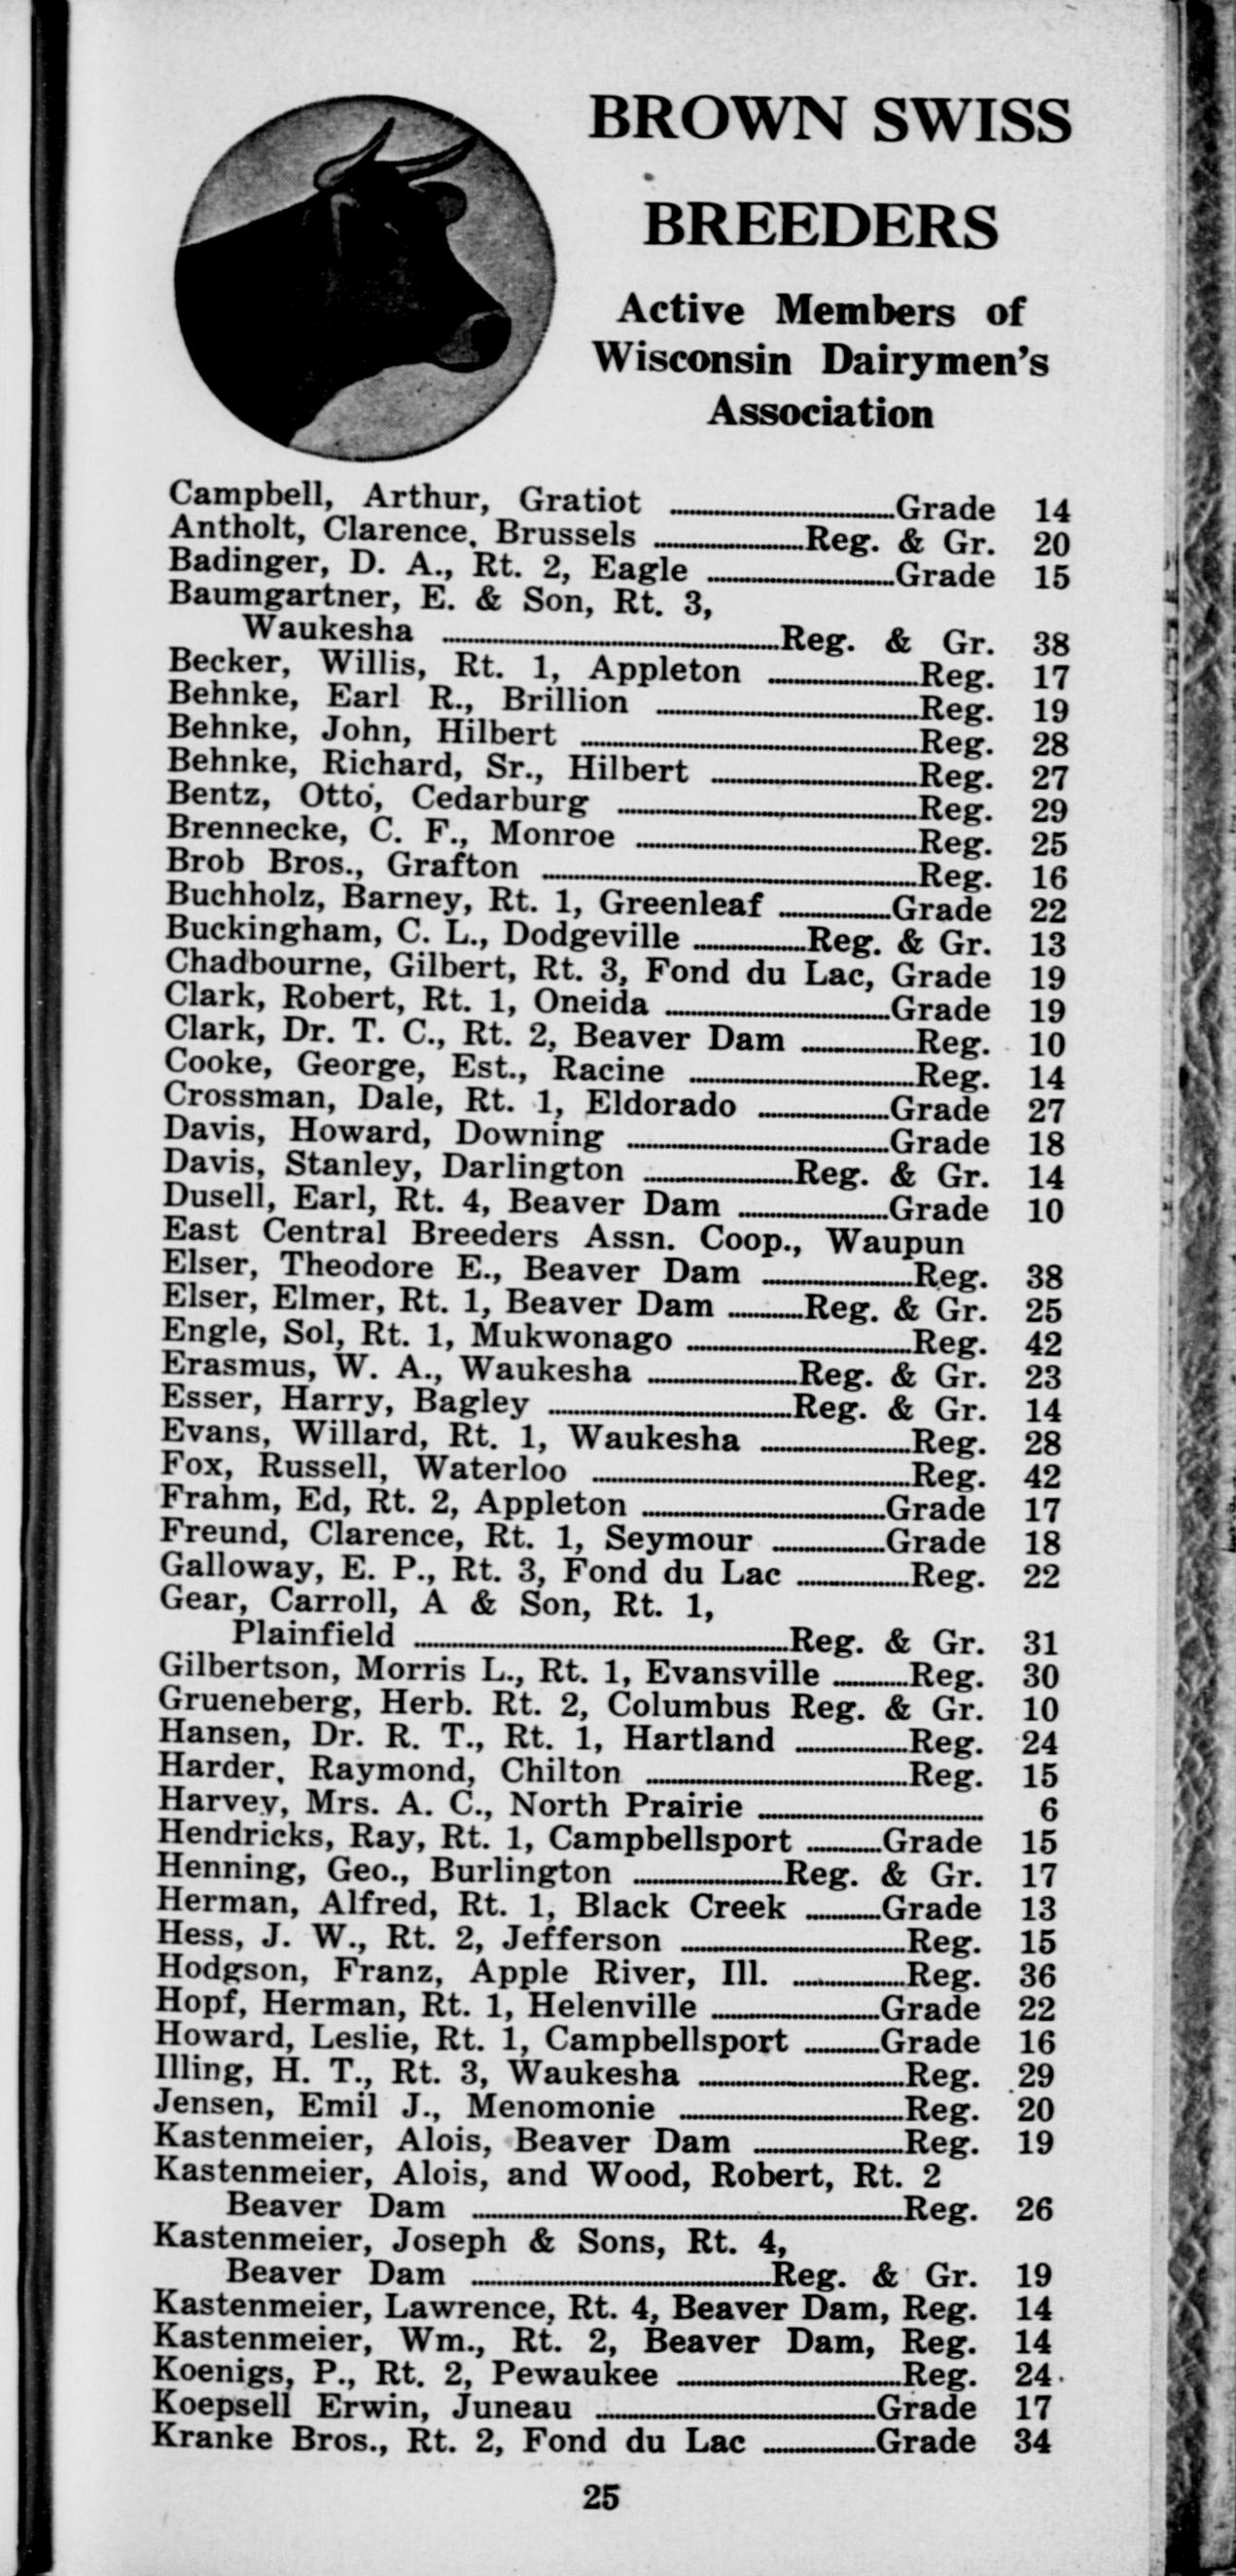 BROWN SWISS
BREEDERS
Active Members of
Wisconsin Dairymen's
Association
Campbell, Arthur, Gratiot ........Grade 14
Antholt, Clarence, Brussels ........Reg. & Gr. 20
Badinger, D. A., Rt. 2, Eagle ........Grade 15
Baumgartner, E. & Son, Rt. 3,
Waukesha ........Reg. & Gr. 38
Becker, Willis, Rt. 1, Appleton ........Reg. 17
Behnke, Earl R., Brillion ........Reg. 19
Behnke, John, Hilbert ........Reg. 28
Behnke, Richard, Sr., Hilbert ........Reg. 27
Bentz, Otto, Cedarburg ........Reg. 29
Brennecke, C. F., Monroe ........Reg. 25
Brob Bros., Grafton ........Reg. 16
Buchholz, Barney, Rt. 1, Greenleaf ........Grade 22
Buckingham, C. L., Dodgeville ........Reg. & Gr. 13
Chadbourne, Gilbert, Rt. 3, Fond du Lac, Grade 19
Clark, Robert, Rt. 1, Oneida ........Grade 19
Clark, Dr. T. C., Rt. 2, Beaver Dam ........Reg. 10
Cooke, George, Est., Racine ........Reg. 14
Crossman, Dale, Rt. 1, Eldorado ........Grade 27
Davis, Howard, Downing ........Grade 18
Davis, Stanley, Darlington ........Reg. & Gr. 14
Dusell, Earl, Rt. 4, Beaver Dam ........Grade 10
East Central Breeders Assn. Coop., Waupun
Elser, Theodore E., Beaver Dam ........Reg. 38
Elser, Elmer, Rt. 1, Beaver Dam ........Reg. & Gr. 25
Engle, Sol, Rt. 1, Mukwonago ........Reg. 42
Erasmus, W. A., Waukesha ........Reg. & Gr. 23
Esser, Harry, Bagley ........Reg. & Gr. 14
Evans, Willard, Rt. 1, Waukesha ........Reg. 28
Fox, Russell, Waterloo ........Reg. 42
Frahm, Ed, Rt. 2, Appleton ........Grade 17
Freund, Clarence, Rt. 1, Seymour ........Grade 18
Galloway, E. P., Rt. 3, Fond du Lac ........Reg. 22
Gear, Carroll, A & Son, Rt. 1,
Plainfield ........Reg. & Gr. 31
Gilbertson, Morris L., Rt. 1, Evansville ........Reg. 30
Grueneberg, Herb. Rt. 2, Columbus Reg. & Gr. 10
Hansen, Dr. R. T., Rt. 1, Hartland ........Reg. 24
Harder, Raymond, Chilton ........Reg. 15
Harvey, Mrs. A. C., North Prairie ........ 6
Hendricks, Ray, Rt. 1, Campbellsport ........Grade 15
Henning, Geo., Burlington ........Reg. & Gr. 17
Herman, Alfred, Rt. 1, Black Creek ........Grade 13
Hess, J. W., Rt. 2, Jefferson ........Reg. 15
Hodgson, Franz, Apple River, Ill. ........Reg. 36
Hopf, Herman, Rt. 1, Helenville ........Grade 22
Howard, Leslie, Rt. 1, Campbellsport ........Grade 16
Illing, H. T., Rt. 3, Waukesha ........Reg. 29
Jensen, Emil J., Menomonie ........Reg. 20
Kastenmeier, Alois, Beaver Dam ........Reg. 19
Kastenmeier, Alois, and Wood, Robert, Rt. 2
Beaver Dam ........Reg. 26
Kastenmeier, Joseph & Sons, Rt. 4,
Beaver Dam ........Reg. & Gr. 19
Kastenmeier, Lawrence, Rt. 4, Beaver Dam, Reg. 14
Kastenmeier, Wm., Rt. 2, Beaver Dam, Reg. 14
Koenigs, P., Rt. 2, Pewaukee ........Reg. 24
Koepsell Erwin, Juneau ........Grade 17
Kranke Bros., Rt. 2, Fond du Lac ........Grade 34
25